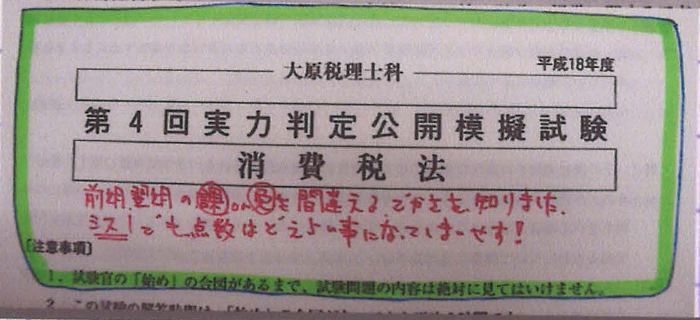 大原税理士科
平成18年度
第4回実力判定公開模擬試験
消費税法
前期翌期の課or免を間違えるでかさを、知りました。
ミス1でも点数はどえらい事になってしまいます!
[注意事項]
1. 試験官の「始め」の合図があるまで、試験問題の内容は絶対に見てはいけません。
2. この試験の解答時間は、「始め」